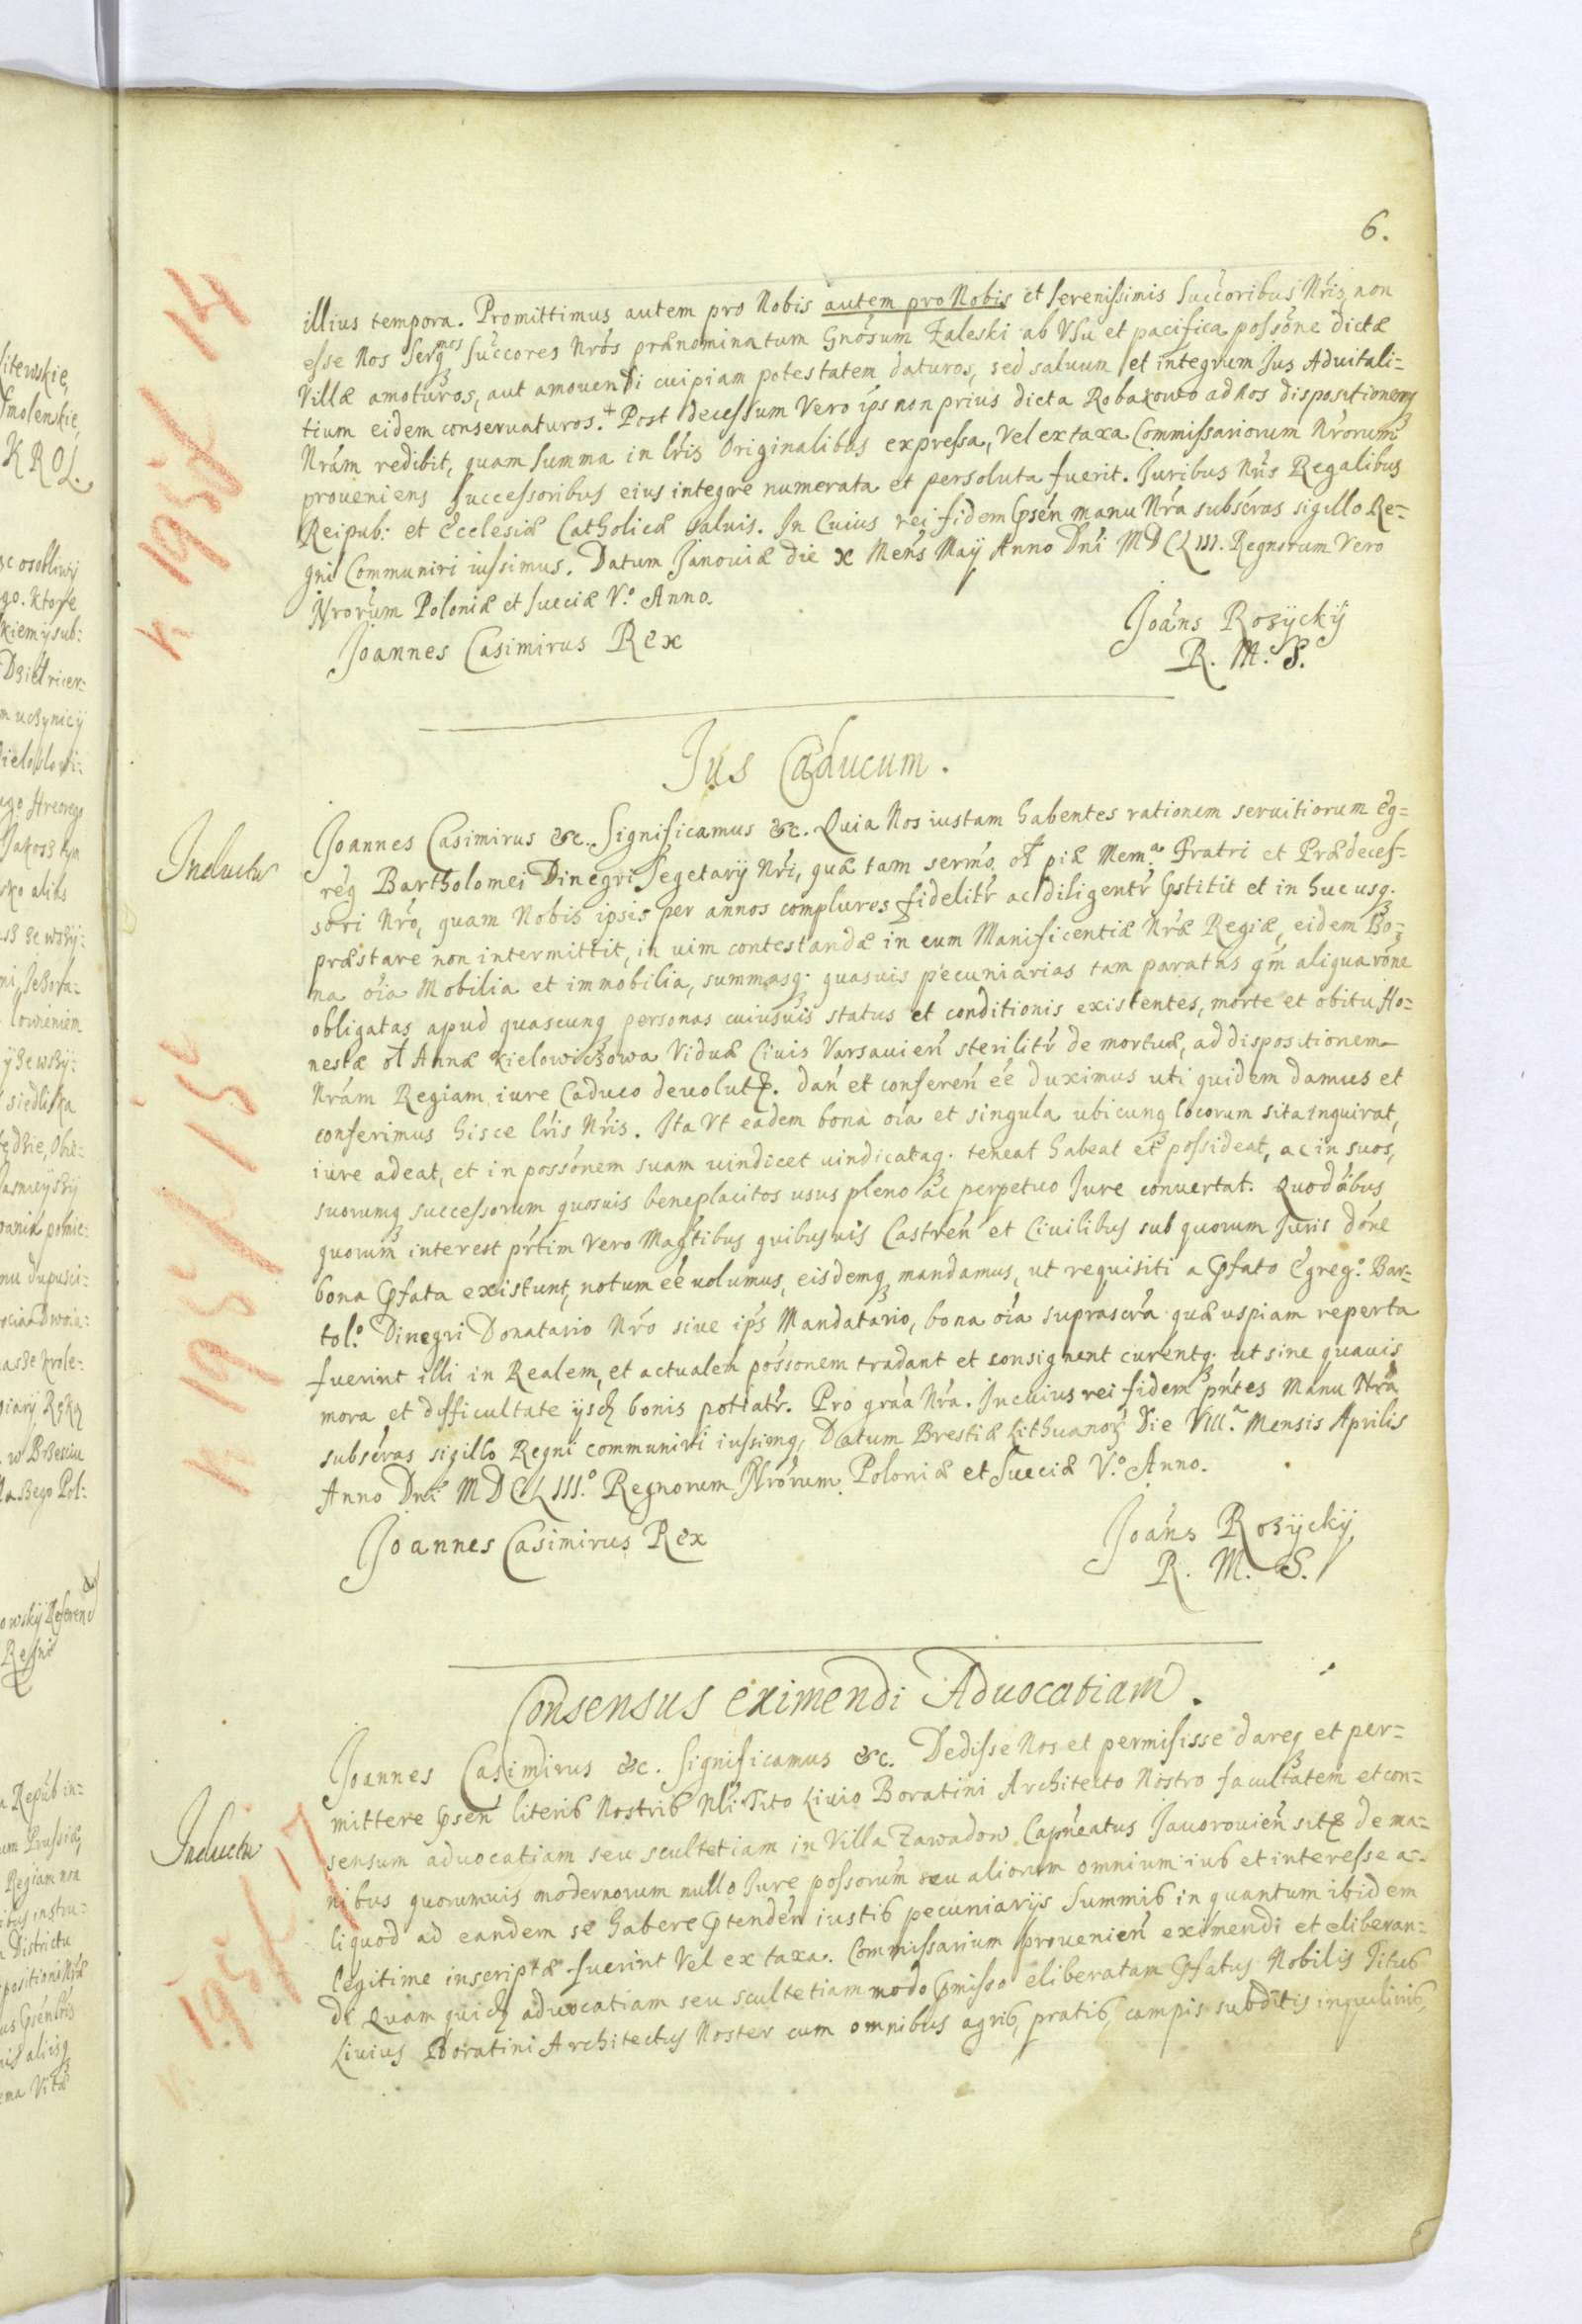 6.
illius tempora. Promittimus autem pro Nobis autem pro Nobis et serenissimis succoribus Nris non
esse Nos serqmos succores Nros prænominatum Gnosum Zaleski ab Vsu et pacifica possone dictæ
Villæ amoturos, aut amouendi cuipiam potestatem daturos, sed saluum et integrum Jus Aduitali-
tium eidem conseruaturos. + Post decessum Vero ips non prius dicta Robakowo ad Nos dispositionemq
Nram redibit, quam summa in lris Originalibus expressa, Vel ex taxa Commissariorum Nrorum
proueniens successoribus eius integre numerata et persoluta fuerit. Juribus Nris Regalibus
Reipub: et Ecclesiæ Catholicæ saluis. In Cuius rei fidem psen manu Nra subscras sigillo Re-
gni Communiri iussimus. Datum Janouiæ die X Mens Maÿ Anno Dni MDCLIII. Regnorum Vero
Nrorum Poloniæ et sueciæ V.o Anno.
Joannes Casimirus Rex
Joans Rozÿckÿ
R. M. S.
Jus Caducum.
Inducta
Joannes Casimirus &c. Significamus &c. Quia Nos iustam habentes rationem seruitiorum eg-
reg Bartholomei Dinegri Segetarÿ Nri, quæ tam sermo. ol piæ Mem.æ Fratri et Prædeces-
sori Nro, quam Nobis ipsis per annos complures fidelitr ac diligentr pstitit et in huc usq.
præstare non intermittit, in uim contestandæ in eum Manificentiæ Nræ Regiæ, eidem Bo-
na oia Mobilia et immobilia, summasq. quasuis pecuniarias tam paratas qm aliqua rone
obligatas apud quascunq personas cuiusuis status et conditionis existentes, morte et obitu Ho-
nestæ ol Annæ Kielowiczowa Viduæ Ciuis Varsauien sterilitr de mortuæ, ad dispositionem
Nram Regiam iure Caduco deuoluta. dan et conferen ee duximus uti quidem damus et
conferimus hisce lris Nris. Ita Vt eadem bona oia et singula ubicunq locorum sita inquirat,
iure adeat, et in possonem suam uindicet uindicataq. teneat habeat et possideat, ac in suos,
suorumq successorum quosuis beneplacitos usus pleno ac perpetuo Jure conuertat. Quod oibus
quorum interest prtim Vero Magtibus quibusuis Castren et Ciuilibus sub quorum Juris done
bona pfata existunt, notum ee uolumus, eisdemq mandamus, ut requisiti a pfato Egreg.o Bar-
tol.o Dinegri Donatario Nro siue ips Mandatario, bona oia suprascra quæ uspiam reperta
fuerint illi in Realem, et actualem possonem tradant et consignent curentq. ut sine quauis
mora et difficultate ÿsd bonis potiatr. Pro graa Nra. In cuius rei fidem pntes Manu Nra
subscras sigillo Regni communiri iussimq, Datum Brestiæ Lithuanor Die VIII.a Mensis Aprilis
Anno Dni MDCLIII.o Regnorum Nrorum Poloniæ et Sueciæ V.o Anno.
Joannes Casimirus Rex
Joans Rozÿckÿ
R. M. S.
Consensus eximendi Aduocatiam.
Inducta
Joannes Casimirus &c. Significamus &c. Dedisse Nos et permisisse dareq et per-
mittere psen literis Nostris Nli Tito Liuio Boratini Architecto Nostro facultatem et con-
sensum aduocatiam seu scultetiam in Villa Zawadow Capneatus Jauorouien sita de ma-
nibus quorumuis modernorum nullo Jure possorum seu aliorum omnium ius et interesse a-
liquod ad eandem se habere ptenden iustis pecuniarÿs summis in quantum ibidem
legitime inscriptæ fuerint Vel ex taxa. Commissarium prouenien eximendi et eliberan-
di Quam quid aduocatiam seu scultetiam modo pmisso eliberatam pfatus Nobilis Titus
Liuius Boratini Architectus Noster cum omnibus agris, pratis, campis subditis inquilinis,